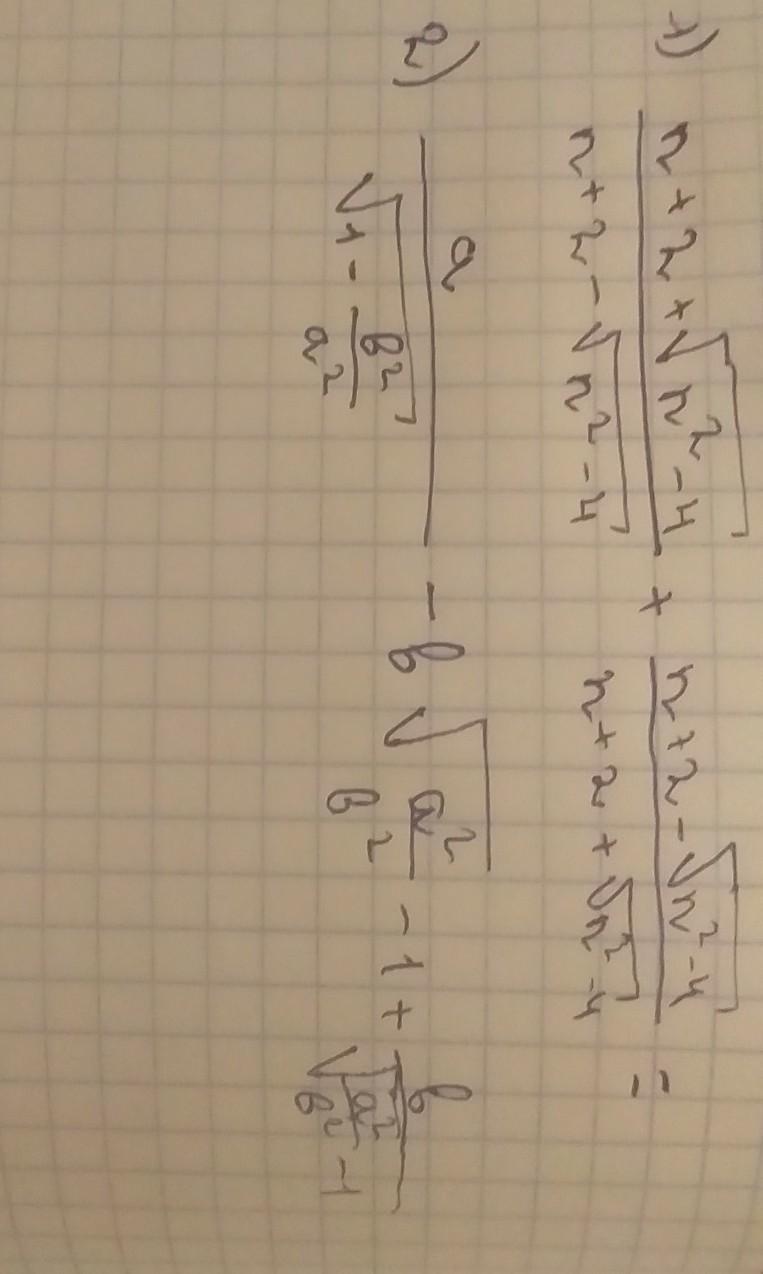 1) \frac{n+2+\sqrt{n^2-4}}{n+2-\sqrt{n^2-4}} + \frac{n+2-\sqrt{n^2-4}}{n+2+\sqrt{n^2-4}} =
2) \frac{a}{\sqrt{1-\frac{b^2}{a^2}}} - b\sqrt{\frac{a^2}{b^2}} - 1 + \frac{b}{\sqrt{\frac{a^2}{b^2}-1}}